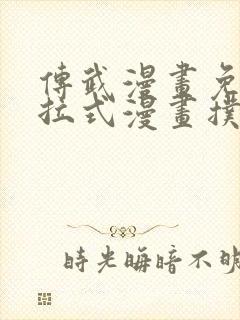 傳武漫畫免
拉式漫畫撲
時光晦暗不明